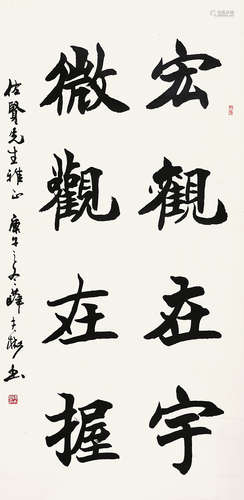 宏觀在宇
微觀在握
先生雅正 庚午之冬薛夫彬書